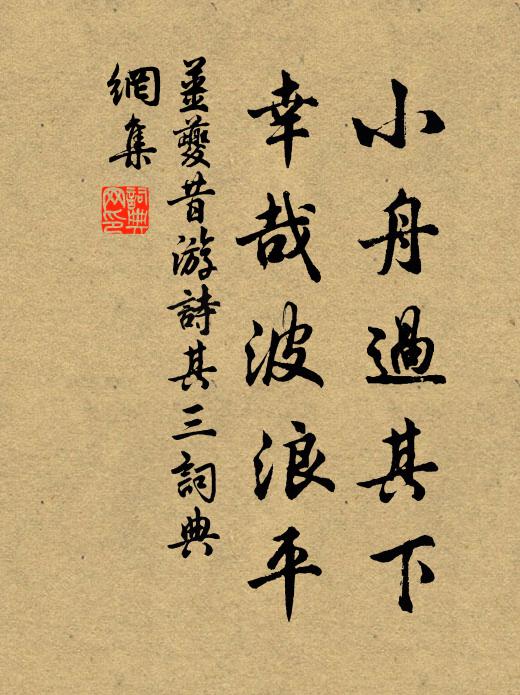 小舟過其下
幸哉波浪平
姜夔昔游詩其三詞典
網集
詞典
网印